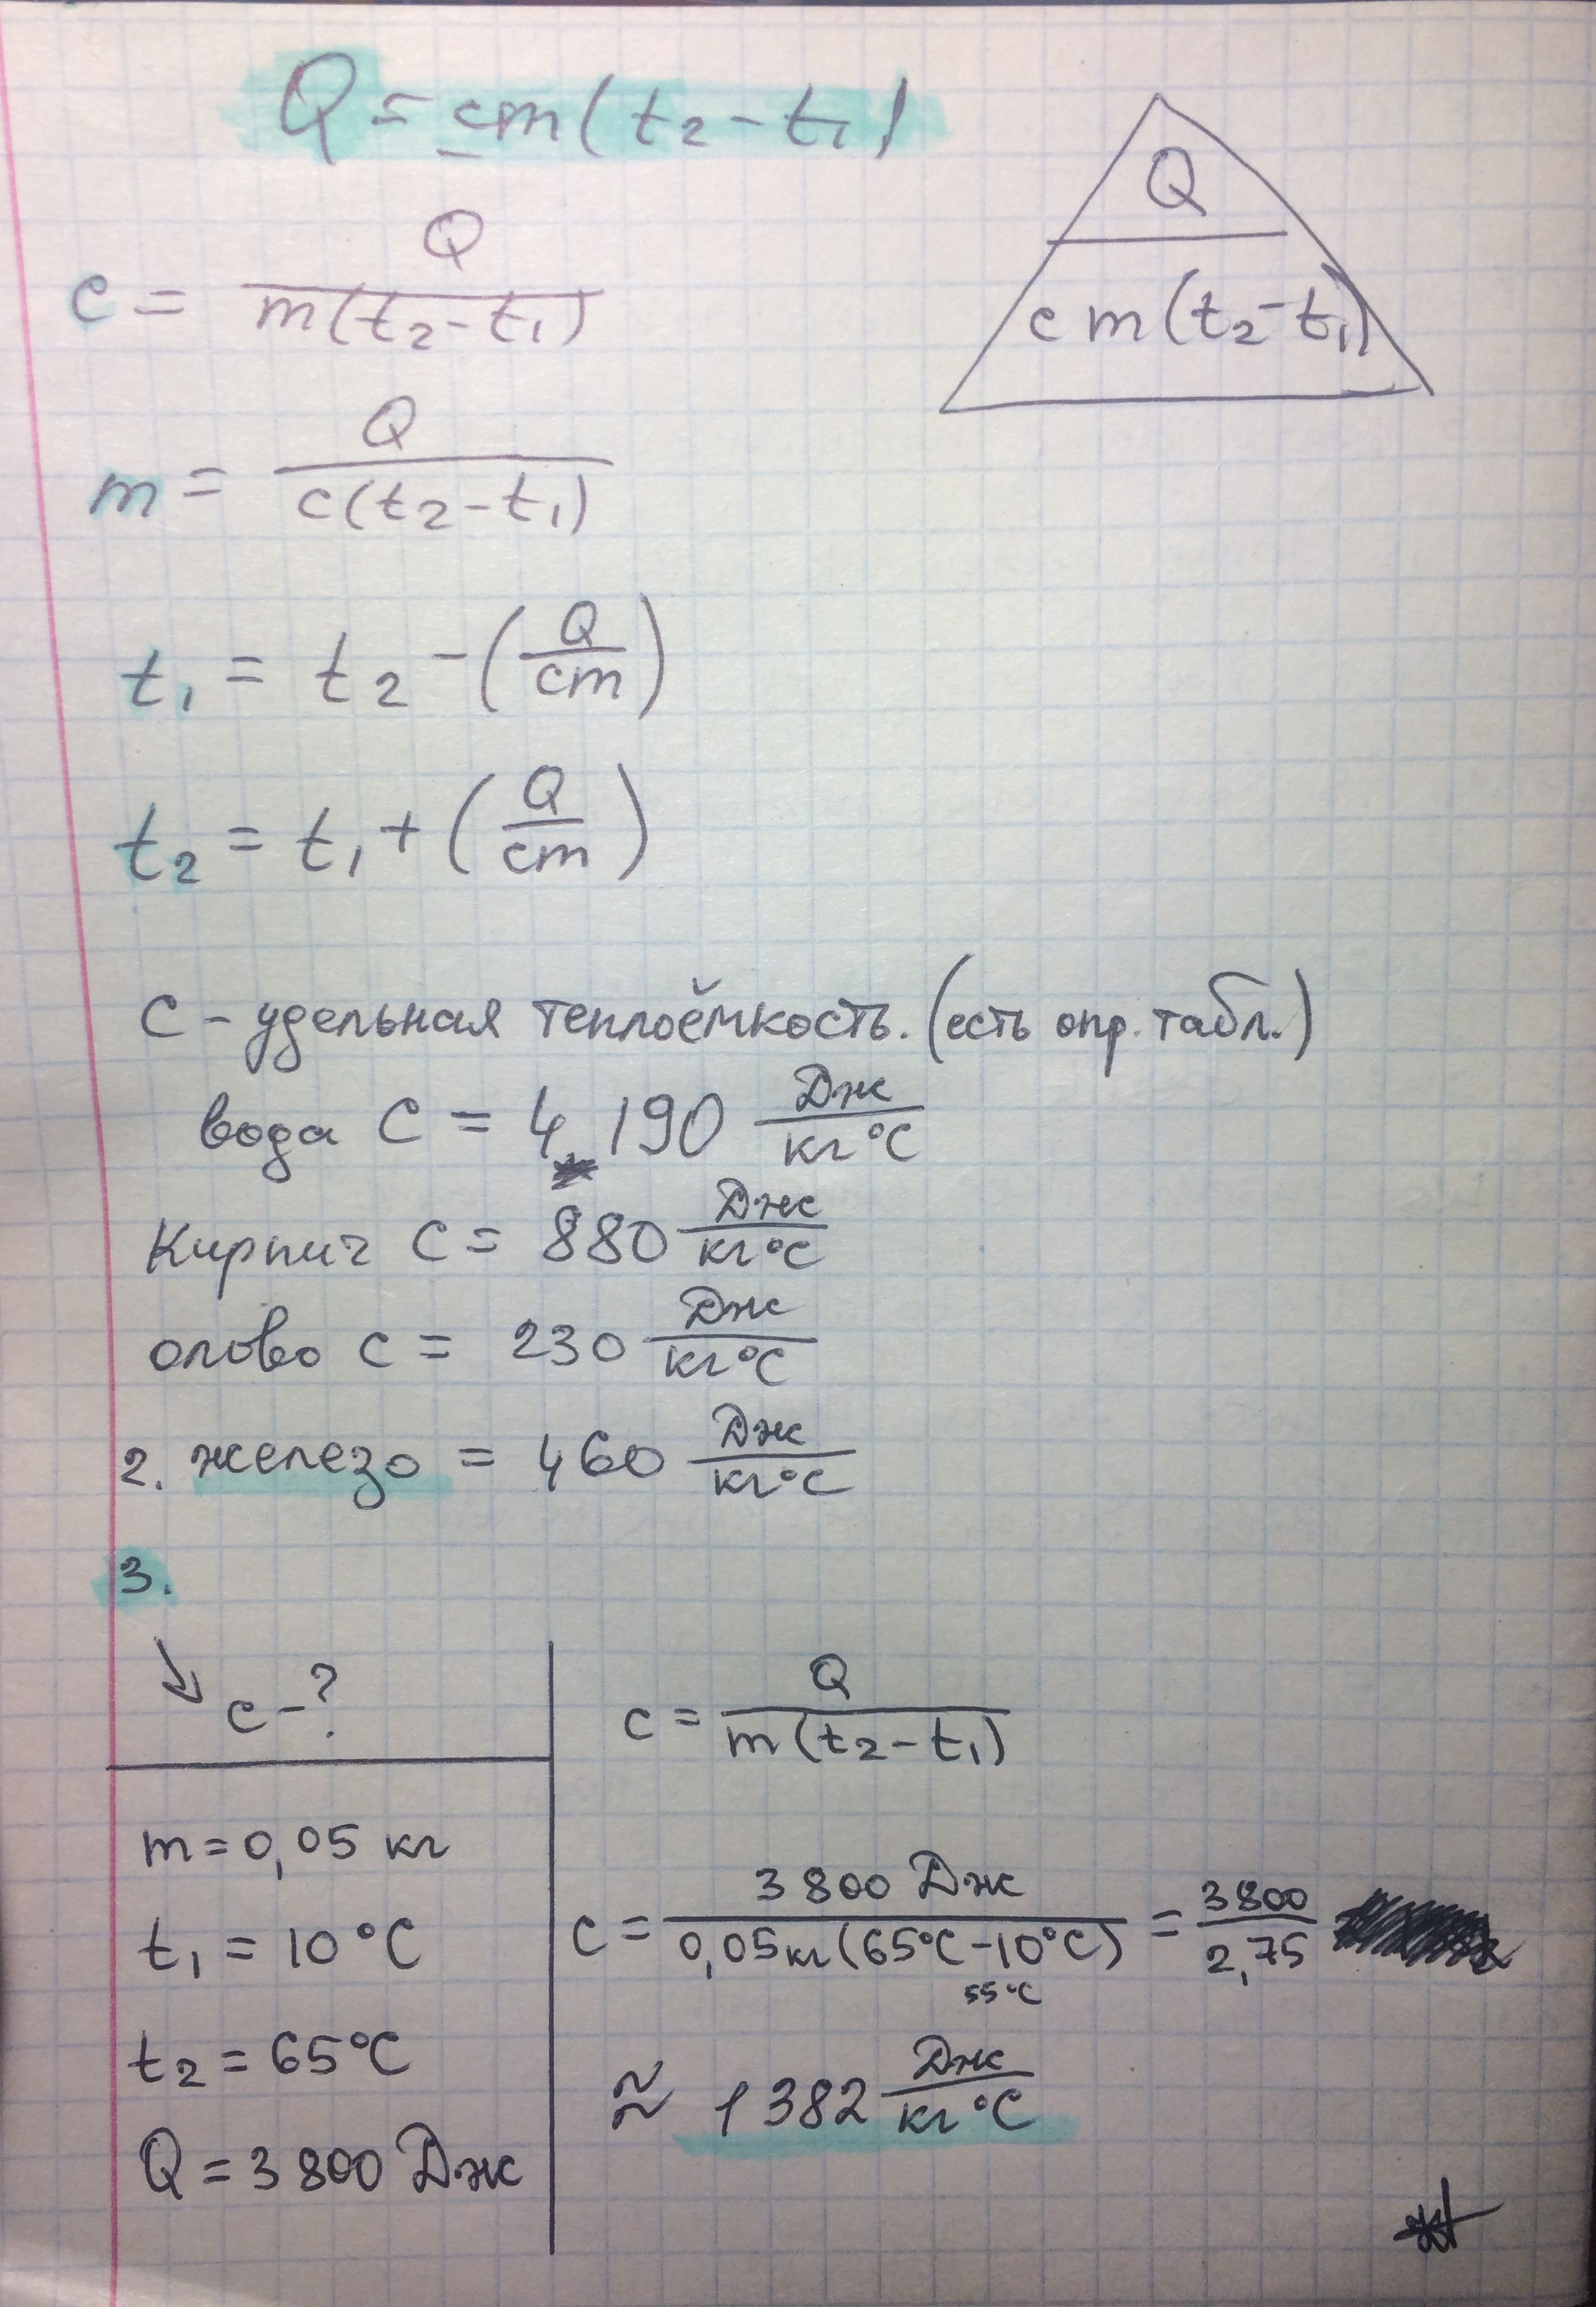 Q = cm(t₂ - t₁)
Q
cm(t₂ - t₁)
c = Q / m(t₂ - t₁)
m = Q / c(t₂ - t₁)
t₁ = t₂ - (Q / cm)
t₂ = t₁ + (Q / cm)
C - удельная теплоёмкость. (есть опр. табл.)
вода C = 4 190 Дж / кг °C
Кирпич C = 880 Дж / кг °C
олово c = 230 Дж / кг °C
2. железо = 460 Дж / кг °C
3.
c - ?
m = 0,05 кг
t₁ = 10 °C
t₂ = 65 °C
Q = 3 800 Дж
c = Q / m(t₂ - t₁)
c = 3 800 Дж / 0,05 кг (65°C - 10°C) = 3 800 / 2,75
55 °C
≈ 1 382 Дж / кг °C